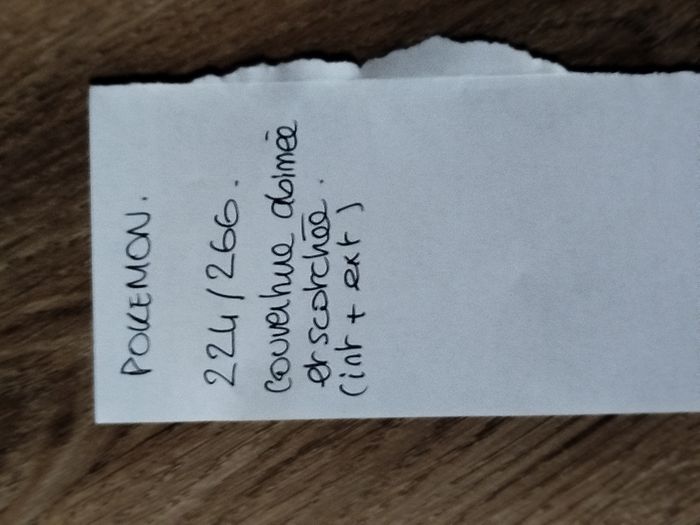 POKEMON.
224/266.
Couverture abimée
et scotchée.
(int + ext)